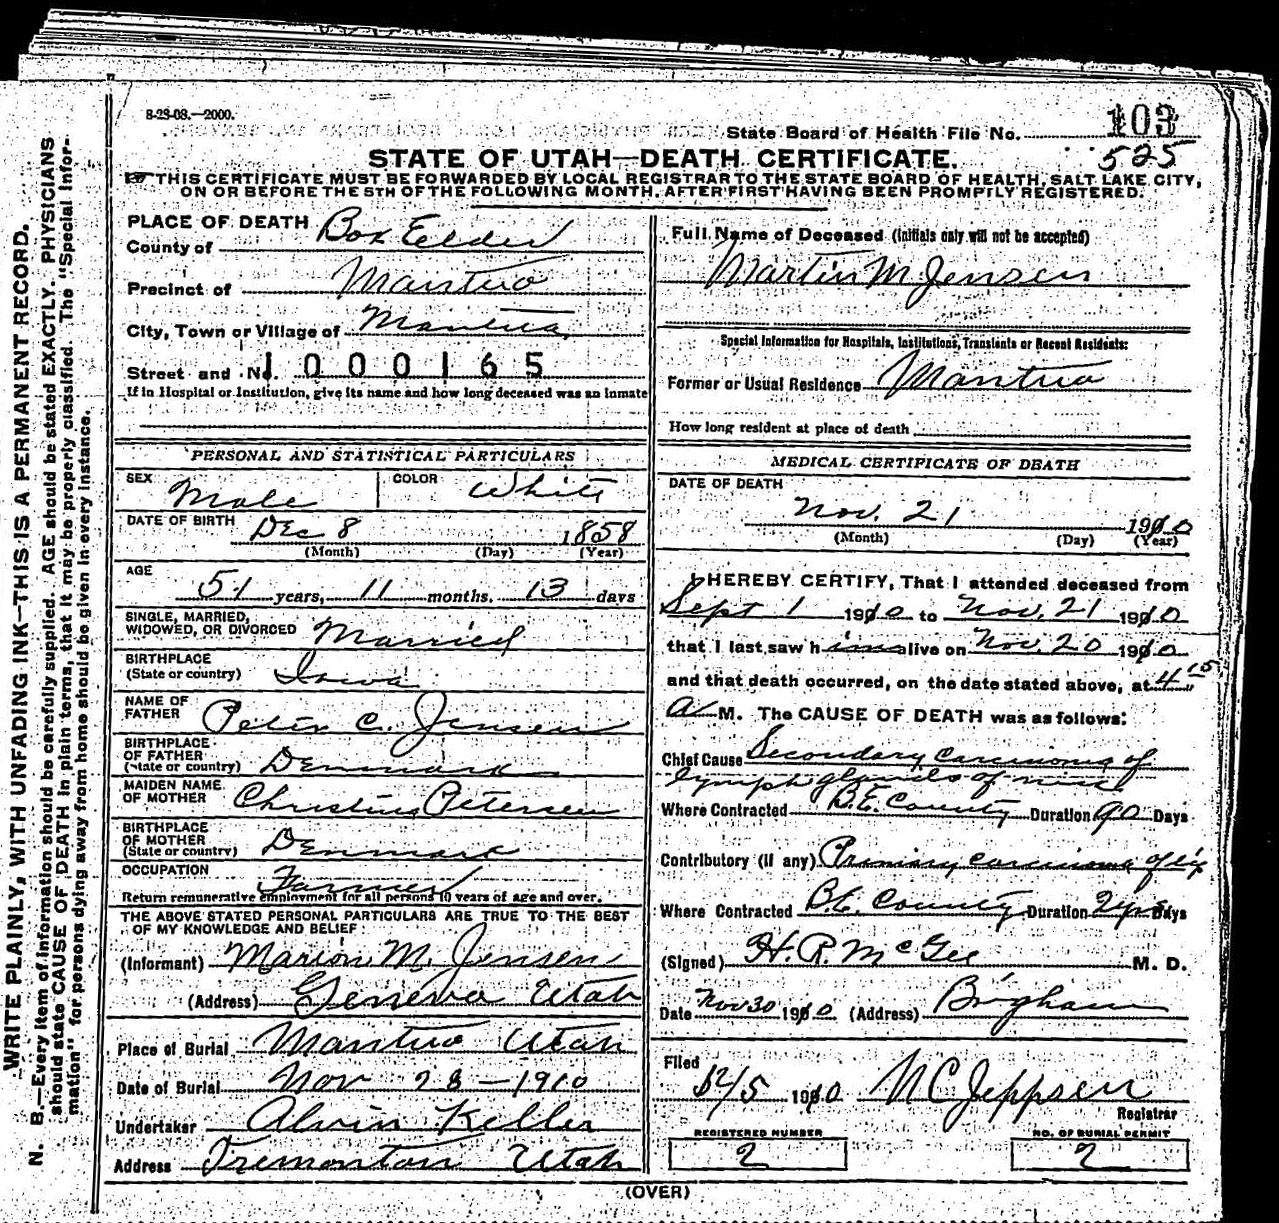 WRITE PLAINLY, WITH UNFADING INK—THIS IS A PERMANENT RECORD.
N. B.—Every item of information should be carefully supplied. AGE should be stated EXACTLY. PHYSICIANS
should state CAUSE OF DEATH in plain terms, that it may be properly classified. The "Special Infor-
mation" for persons dying away from home should be given in every instance.
8-28-08.—2000.
State Board of Health File No. 103
525
STATE OF UTAH—DEATH CERTIFICATE.
THIS CERTIFICATE MUST BE FORWARDED BY LOCAL REGISTRAR TO THE STATE BOARD OF HEALTH, SALT LAKE CITY,
ON OR BEFORE THE 5TH OF THE FOLLOWING MONTH, AFTER FIRST HAVING BEEN PROMPTLY REGISTERED.
PLACE OF DEATH
County of Box Eelder
Precinct of Mantua
City, Town or Village of Mantua
Street and No. 1000165
If in Hospital or Institution, give its name and how long deceased was an inmate
PERSONAL AND STATISTICAL PARTICULARS
SEX Male COLOR White
DATE OF BIRTH Dec 8 1858
(Month) (Day) (Year)
AGE
51 years, 11 months, 13 days
SINGLE, MARRIED,
WIDOWED, OR DIVORCED Married
BIRTHPLACE
(State or country) Iowa
NAME OF
FATHER Peter C. Jensen
BIRTHPLACE
OF FATHER
(State or country) Denmark
MAIDEN NAME
OF MOTHER Christina Petersen
BIRTHPLACE
OF MOTHER
(State or country) Denmark
OCCUPATION
Farmer
Return remunerative employment for all persons 10 years of age and over.
THE ABOVE STATED PERSONAL PARTICULARS ARE TRUE TO THE BEST
OF MY KNOWLEDGE AND BELIEF
(Informant) Marion M. Jensen
(Address) Geneva Utah
Place of Burial Mantua Utah
Date of Burial Nov 23—1910
Undertaker Alvin Keller
Address Tremonton Utah
Full Name of Deceased (Initials only will not be accepted)
Martin M Jensen
Special Information for Hospitals, Institutions, Transients or Recent Residents:
Former or Usual Residence Mantua
How long resident at place of death
MEDICAL CERTIFICATE OF DEATH
DATE OF DEATH
Nov. 21 1910
(Month) (Day) (Year)
I HEREBY CERTIFY, That I attended deceased from
Sept 1 1910 to Nov. 21 1910
that I last saw him alive on Nov. 20 1910
and that death occurred, on the date stated above, at 4 15
A M. The CAUSE OF DEATH was as follows:
Chief Cause Secondary Carcinoma of
lymph glands of neck
Where Contracted B.E. County Duration 90 Days
Contributory (if any) Primary carcinoma of lip
Where Contracted B.E. County Duration 2 yrs Days
(Signed) H. R. McGee M. D.
Date Nov 30 1910 (Address) Brigham
Filed
12/5 1910 N C Jeppsen
Registrar
REGISTERED NUMBER
2
NO. OF BURIAL PERMIT
2
(OVER)